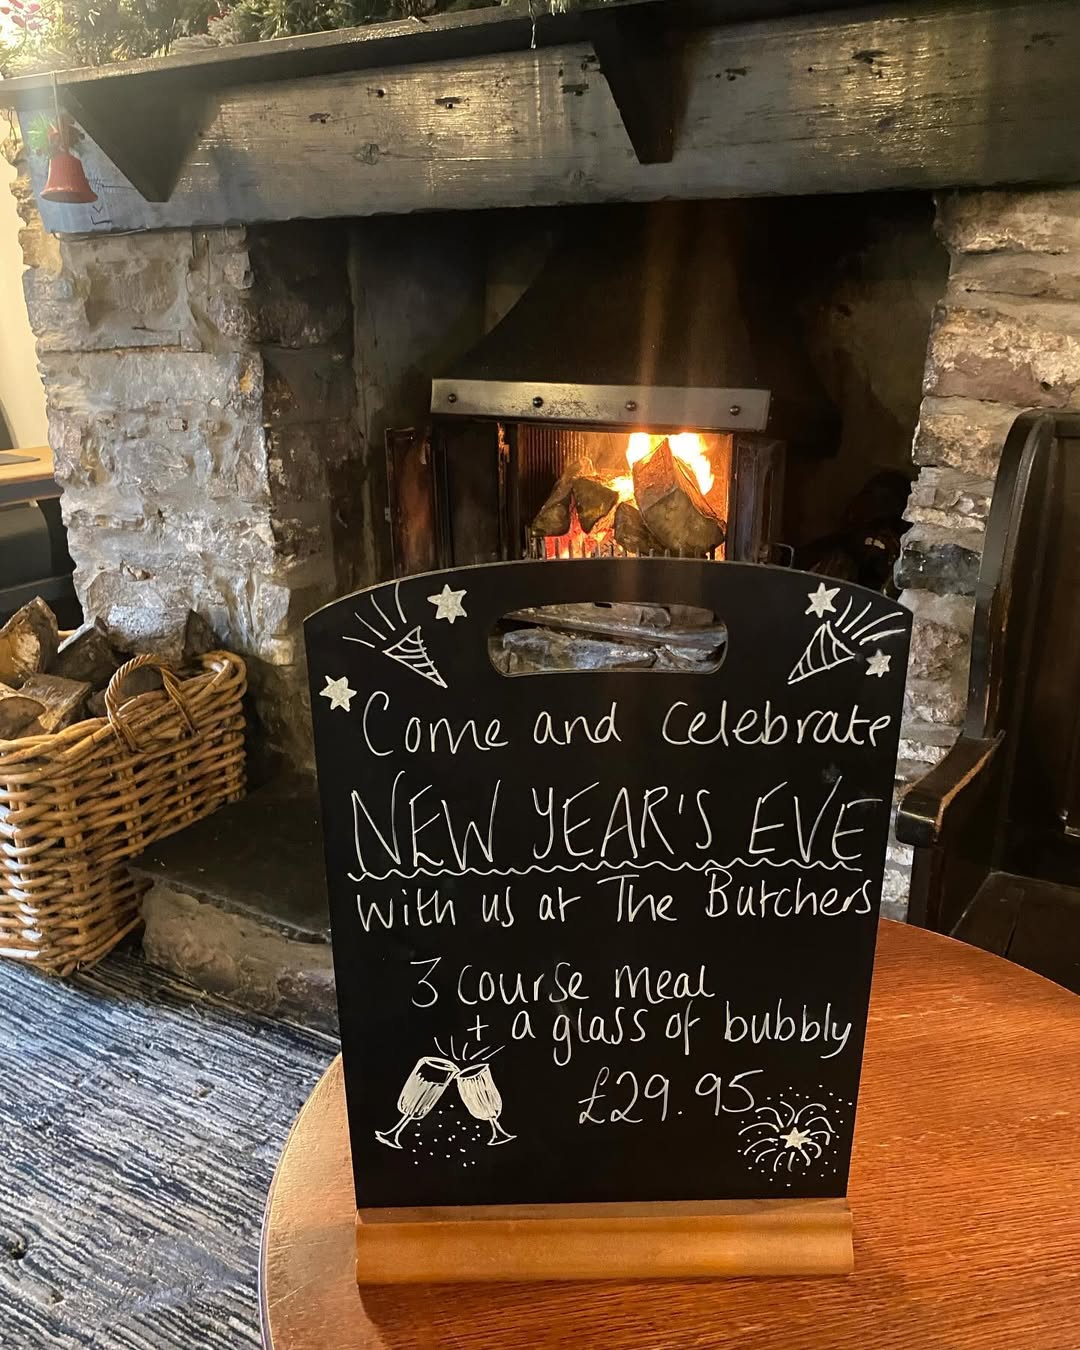 Come and celebrate
NEW YEAR'S EVE
with us at The Butchers
3 course meal
+ a glass of bubbly
£29.95